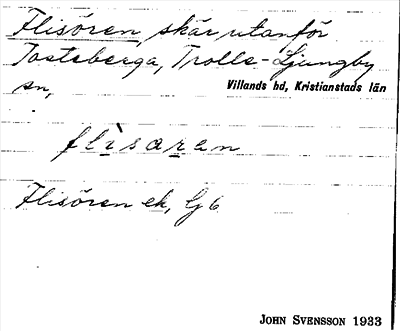 Flisören, skär utanför
Tosteberga, Trolle-Ljungby
sn, Villands hd, Kristianstads län
flìsaren
Flisören ek, Gj 6
JOHN SVENSSON 1933